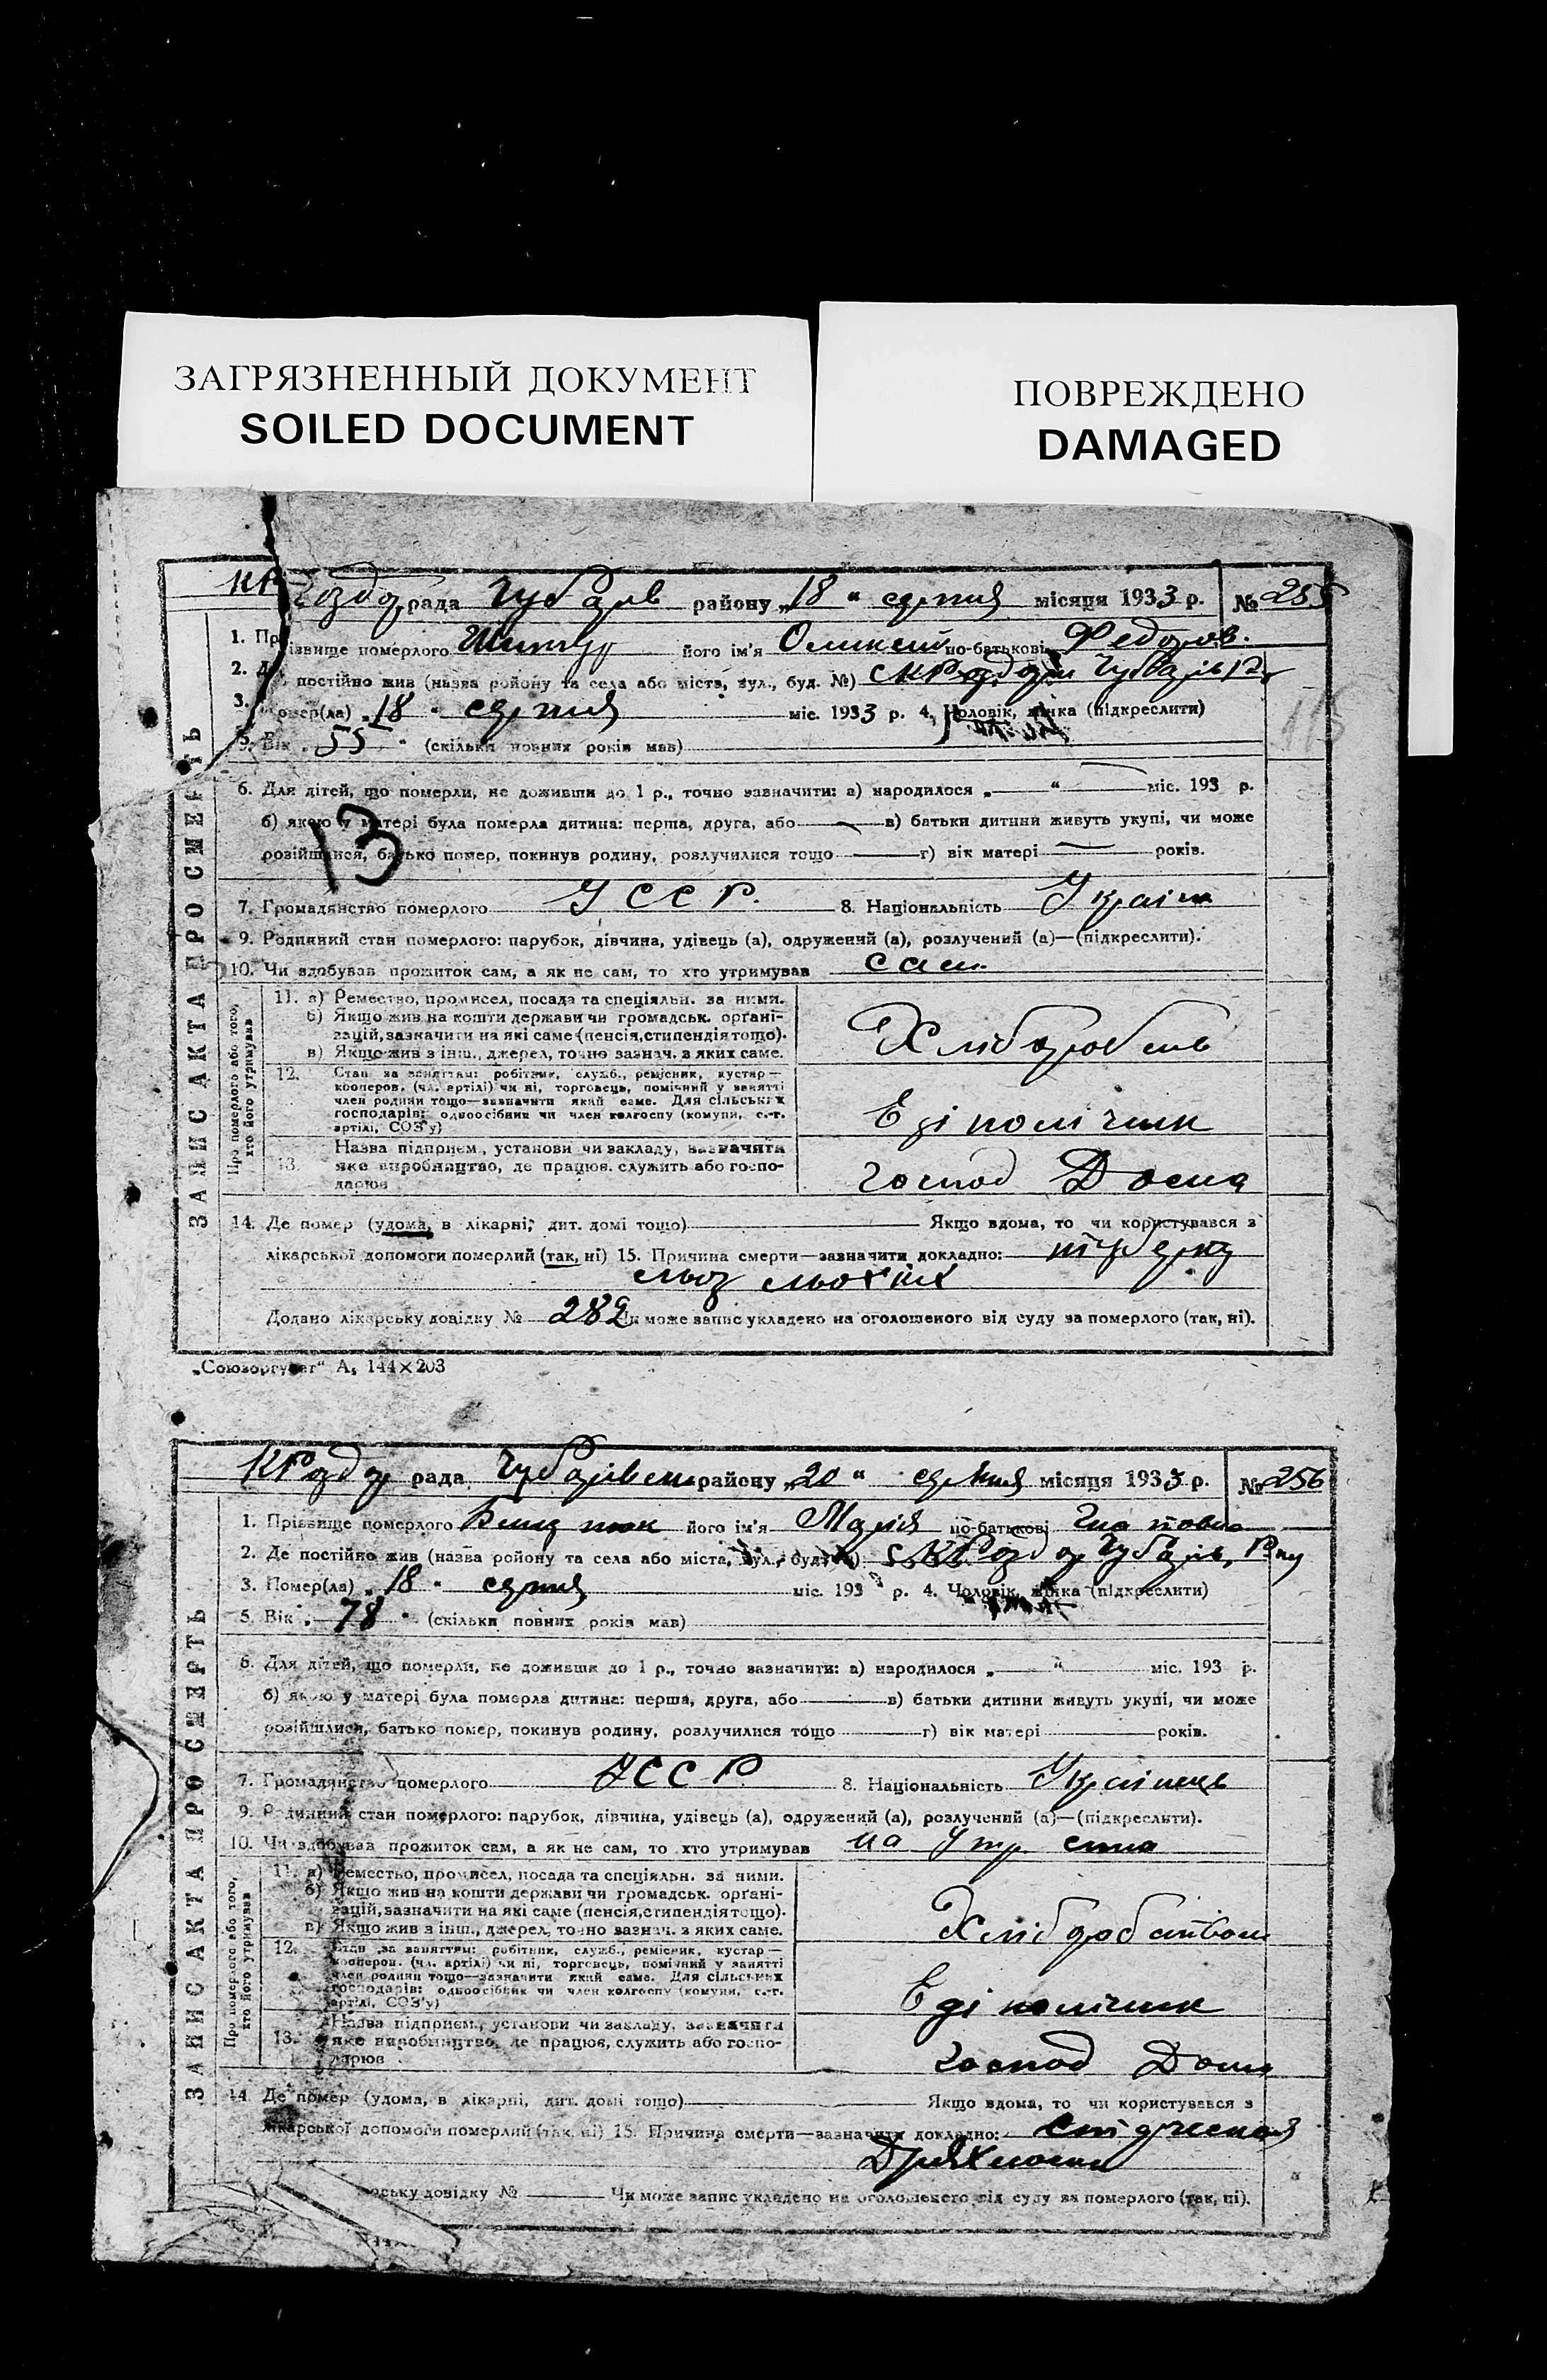 ЗАГРЯЗНЕННЫЙ ДОКУМЕНТ
SOILED DOCUMENT
ПОВРЕЖДЕНО
DAMAGED
ЗАПИС АКТА ПРО СМЕРТЬ
рада Чубарів району „18“ серпня місяця 1933 р. № 255
1. Прізвище померлого його ім'я Оликсій по-батькові Федоров.
2. Де постійно жив (назва району та села або міста, вул., буд. №)
3. Помер(ла) „18“ серпня міс. 1933 р. 4. Чоловік, жінка (підкреслити)
5. Вік „55“ (скільки повних років мав)
6. Для дітей, що померли, не доживши до 1 р., точно зазначити: а) народилося „ “ міс. 193 р.
б) якою у матері була померла дитина: перша, друга, або в) батьки дитини живуть укупі, чи може
розійшлися, батько помер, покинув родину, розлучилися тощо г) вік матері років.
13
7. Громадянство померлого УССР. 8. Національність Україн
9. Родинний стан померлого: парубок, дівчина, удівець (а), одружений (а), розлучений (а)—(підкреслити).
10. Чи здобував прожиток сам, а як не сам, то хто утримував сам
Про померлого або того, хто його утримував
11. а) Ремество, промисел, посада та спеціяльн. за ними.
б) Якщо жив на кошти держави чи громадськ. органі-
зацій, зазначити на які саме (пенсія, стипендія тощо).
в) Якщо жив з інш., джерел, точно зазнач. з яких саме.
Хлібороб
12. Стан за заняттям: робітник, служб., ремісник, кустар—
кооперов. (чл. артілі) чи ні, торговець, помічний у занятті
член родини тощо—зазначити який саме. Для сільських
господарів: одноосібник чи член колгоспу (комуни, с.-г.
артілі, СОЗ'у)
Едіноличник
13. Назва підприєм., установи чи закладу, зазначити
яке виробництво, де працюв. служить або госпо-
дарює
господ Дома
14. Де помер (удома, в лікарні, дит. домі тощо) Якщо вдома, то чи користувався з
лікарської допомоги померлий (так, ні) 15. Причина смерти—зазначити докладно: туберку
льоз льохких
Додано лікарську довідку № 282 Чи може запис укладено на оголошеного від суду за померлого (так, ні).
„Союзоргучет“ А₅ 144×203
ЗАПИС АКТА ПРО СМЕРТЬ
КРоздор рада Чубарівськ району „20“ серпня місяця 1933 р. № 256
1. Прізвище померлого його ім'я Марія по-батькові
2. Де постійно жив (назва району та села або міста, вул., буд. №) с. КРоздор Чубарів, Рну
3. Помер(ла) „18“ серпня міс. 193 р. 4. Чоловік, жінка (підкреслити)
5. Вік „78“ (скільки повних років мав)
6. Для дітей, що померли, не доживши до 1 р., точно зазначити: а) народилося „ “ міс. 193 р.
б) якою у матері була померла дитина: перша, друга, або в) батьки дитини живуть укупі, чи може
розійшлися, батько помер, покинув родину, розлучилися тощо г) вік матері років.
7. Громадянство померлого УССР 8. Національність Українець
9. Родинний стан померлого: парубок, дівчина, удівець (а), одружений (а), розлучений (а)—(підкреслити).
10. Чи здобував прожиток сам, а як не сам, то хто утримував на Утр. сина
Про померлого або того, хто його утримував
11. а) Ремество, промисел, посада та спеціяльн. за ними.
б) Якщо жив на кошти держави чи громадськ. органі-
зацій, зазначити на які саме (пенсія, стипендія тощо).
в) Якщо жив з інш., джерел, точно зазнач. з яких саме.
Хліборобством
12. Стан за заняттям: робітник, служб., ремісник, кустар—
кооперов. (чл. артілі) чи ні, торговець, помічний у занятті
член родини тощо—зазначити який саме. Для сільських
господарів: одноосібник чи член колгоспу (комуни, с.-г.
артілі, СОЗ'у)
Едіноличник
13. Назва підприєм., установи чи закладу, зазначити
яке виробництво, де працює, служить або госпо-
дарює
господ Дома
14. Де помер (удома, в лікарні, дит. домі тощо) Якщо вдома, то чи користувався з
лікарської допомоги померлий (так, ні) 15. Причина смерти—зазначити докладно:
Дряхлости
довідку № Чи може запис укладено на оголошеного від суду за померлого (так, ні).